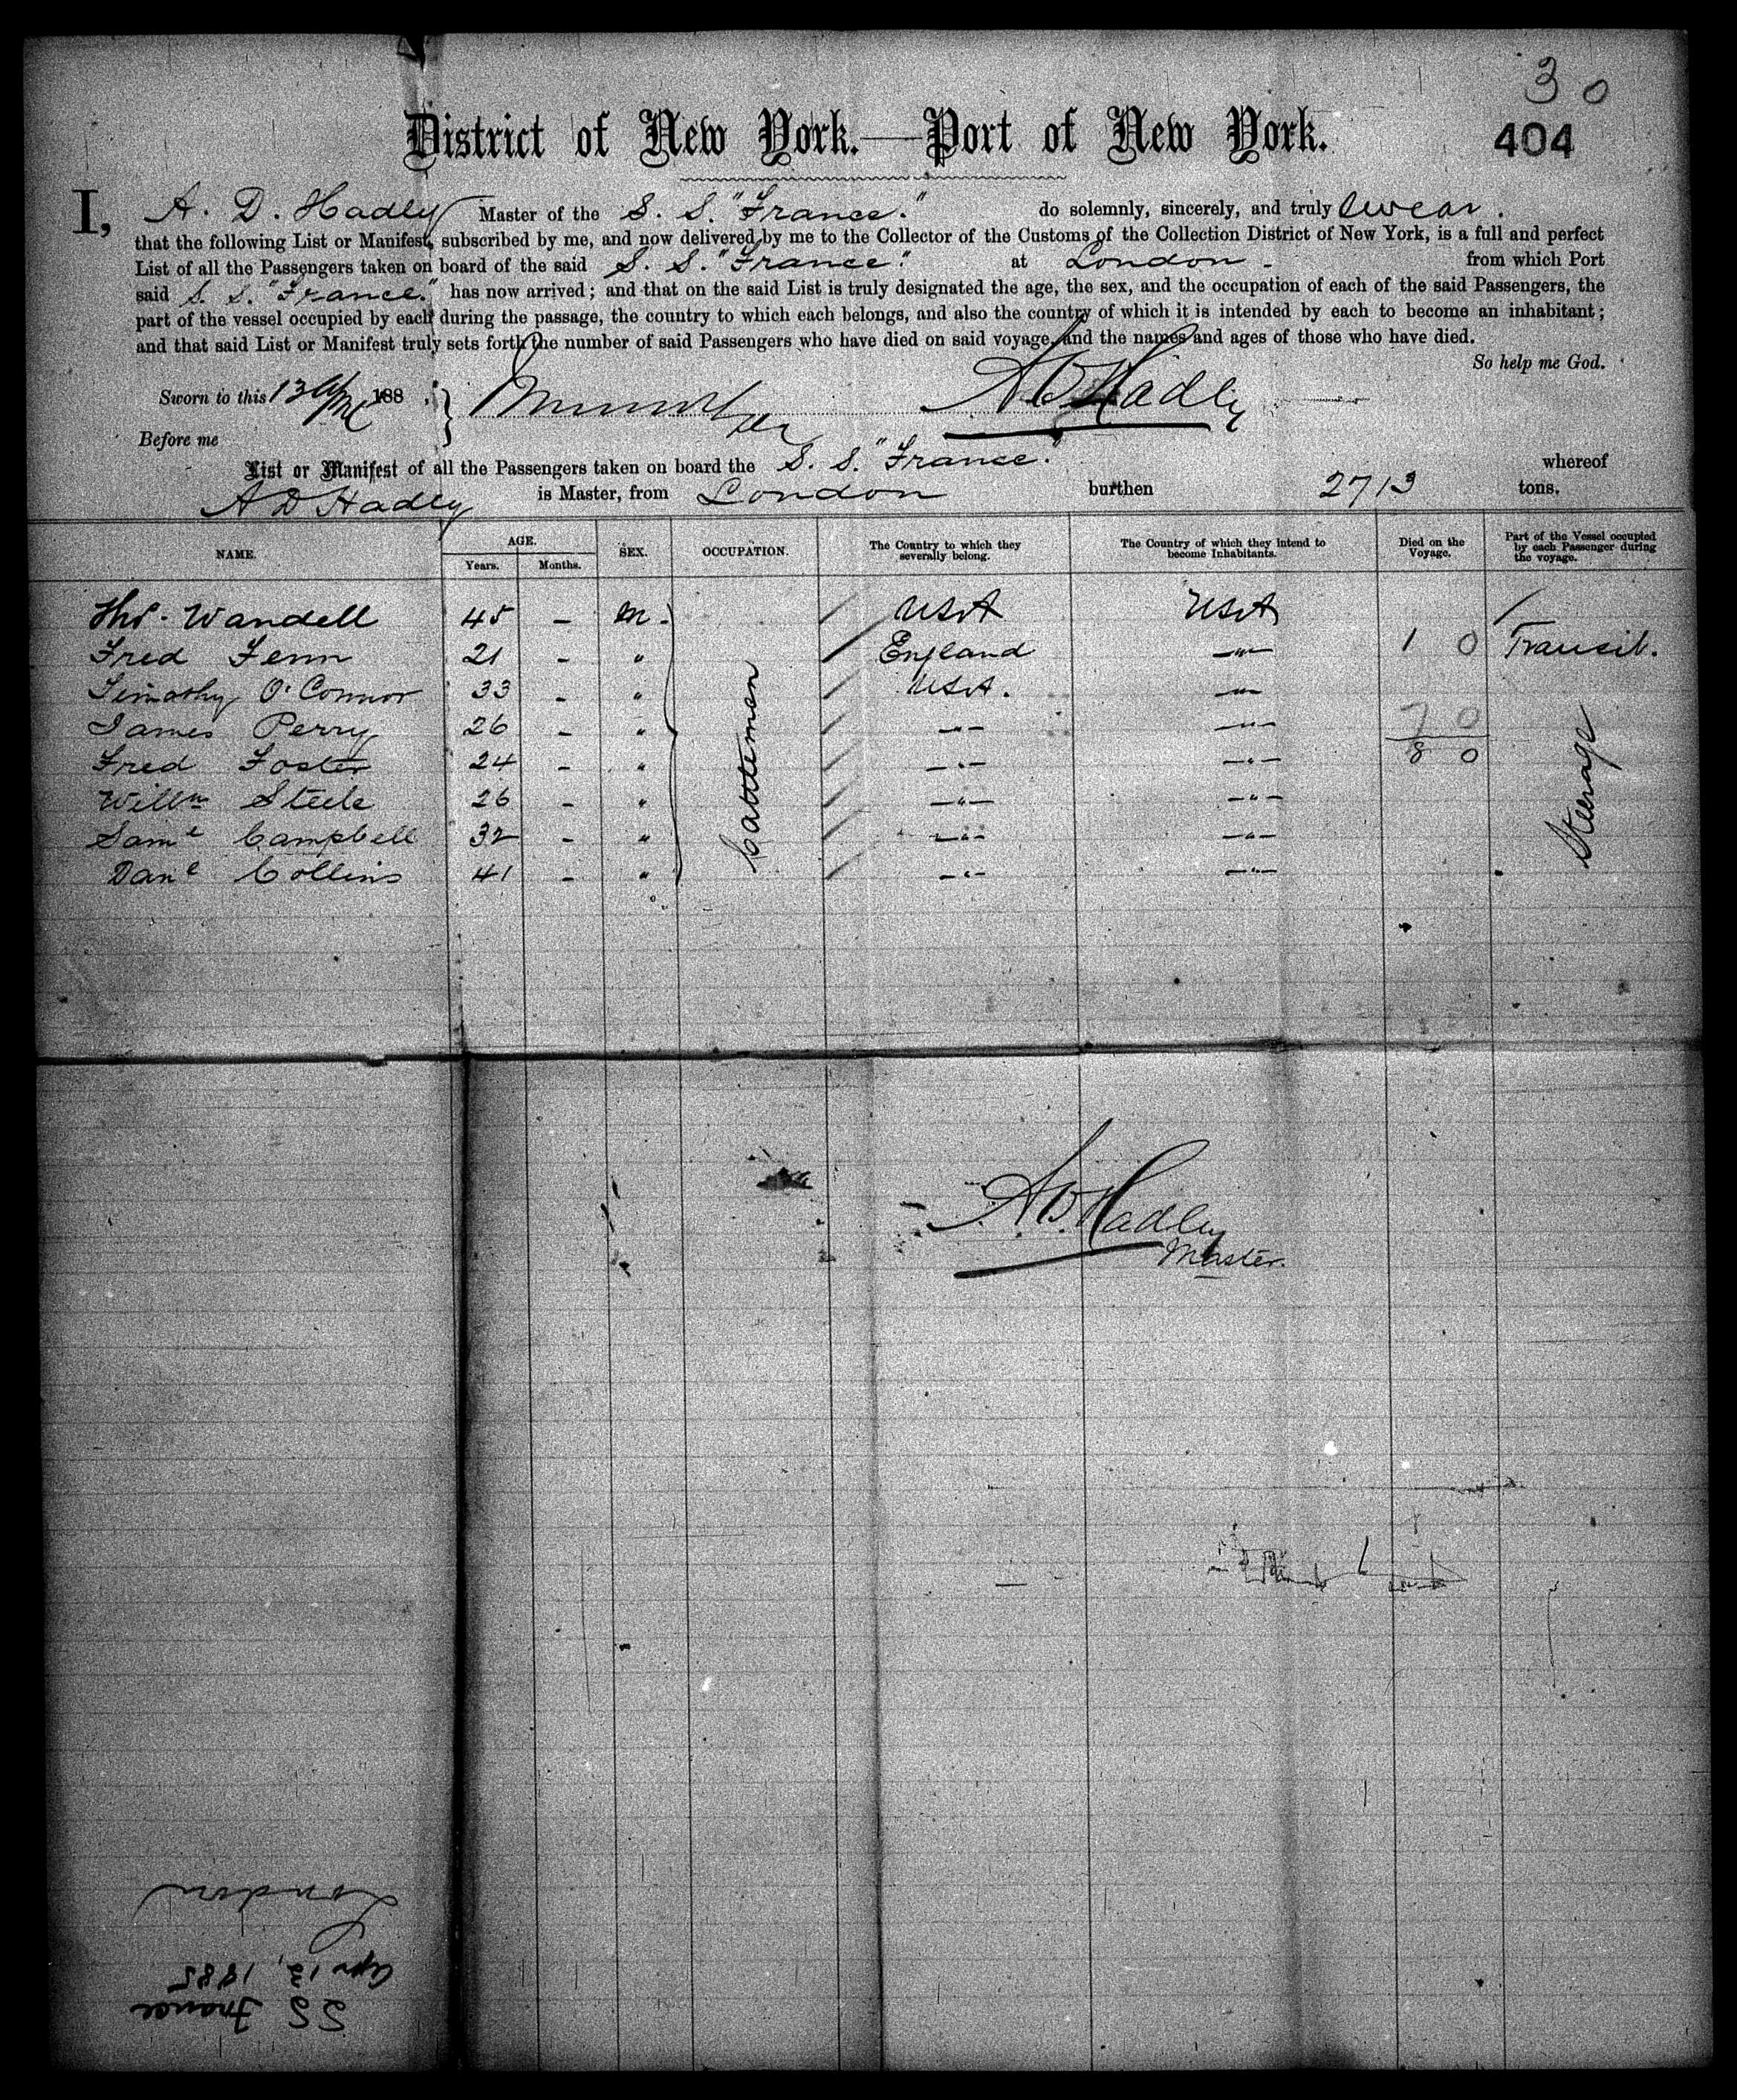 30
404
District of New York.—Port of New York.
I, A. D. Hadley Master of the S. S. "France." do solemnly, sincerely, and truly swear.
that the following List or Manifest, subscribed by me, and now delivered by me to the Collector of the Customs of the Collection District of New York, is a full and perfect
List of all the Passengers taken on board of the said S. S. "France." at London - from which Port
said S. S. "France." has now arrived; and that on the said List is truly designated the age, the sex, and the occupation of each of the said Passengers, the
part of the vessel occupied by each during the passage, the country to which each belongs, and also the country of which it is intended by each to become an inhabitant;
and that said List or Manifest truly sets forth the number of said Passengers who have died on said voyage, and the names and ages of those who have died.
So help me God.
Sworn to this 13 188 A D Hadley
Before me
List or Manifest of all the Passengers taken on board the S. S. "France." whereof
A D Hadley is Master, from London burthen 2713 tons.
NAME. AGE. Years. Months. SEX. OCCUPATION. The Country to which they severally belong. The Country of which they intend to become Inhabitants. Died on the Voyage. Part of the Vessel occupied by each Passenger during the voyage.
Thos. Wandell 45 - M. USA USA
Fred Fenn 21 - " England —"— 1 0 Transit.
Timothy O'Connor 33 - " USA. —"—
James Perry 26 - " —"— —"— 7 0
Fred Foster 24 - " —"— —"— 8 0
Willm Steele 26 - " —"— —"—
Saml Campbell 32 - " —"— —"—
Danl Collins 41 - " —"— —"—
Cattleman
Steerage
A D. Hadley
Master.
SS France
Apr 13, 1885
London